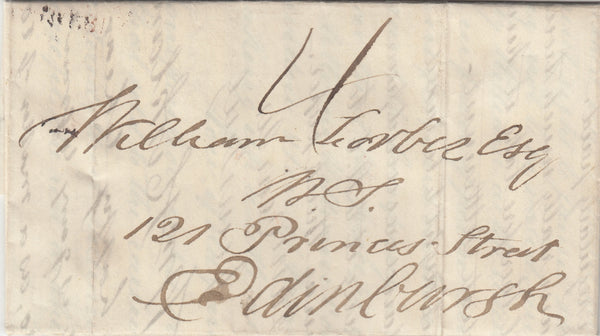 4
William Forbes Esq
W.S.
121 Princes Street
Edinburgh